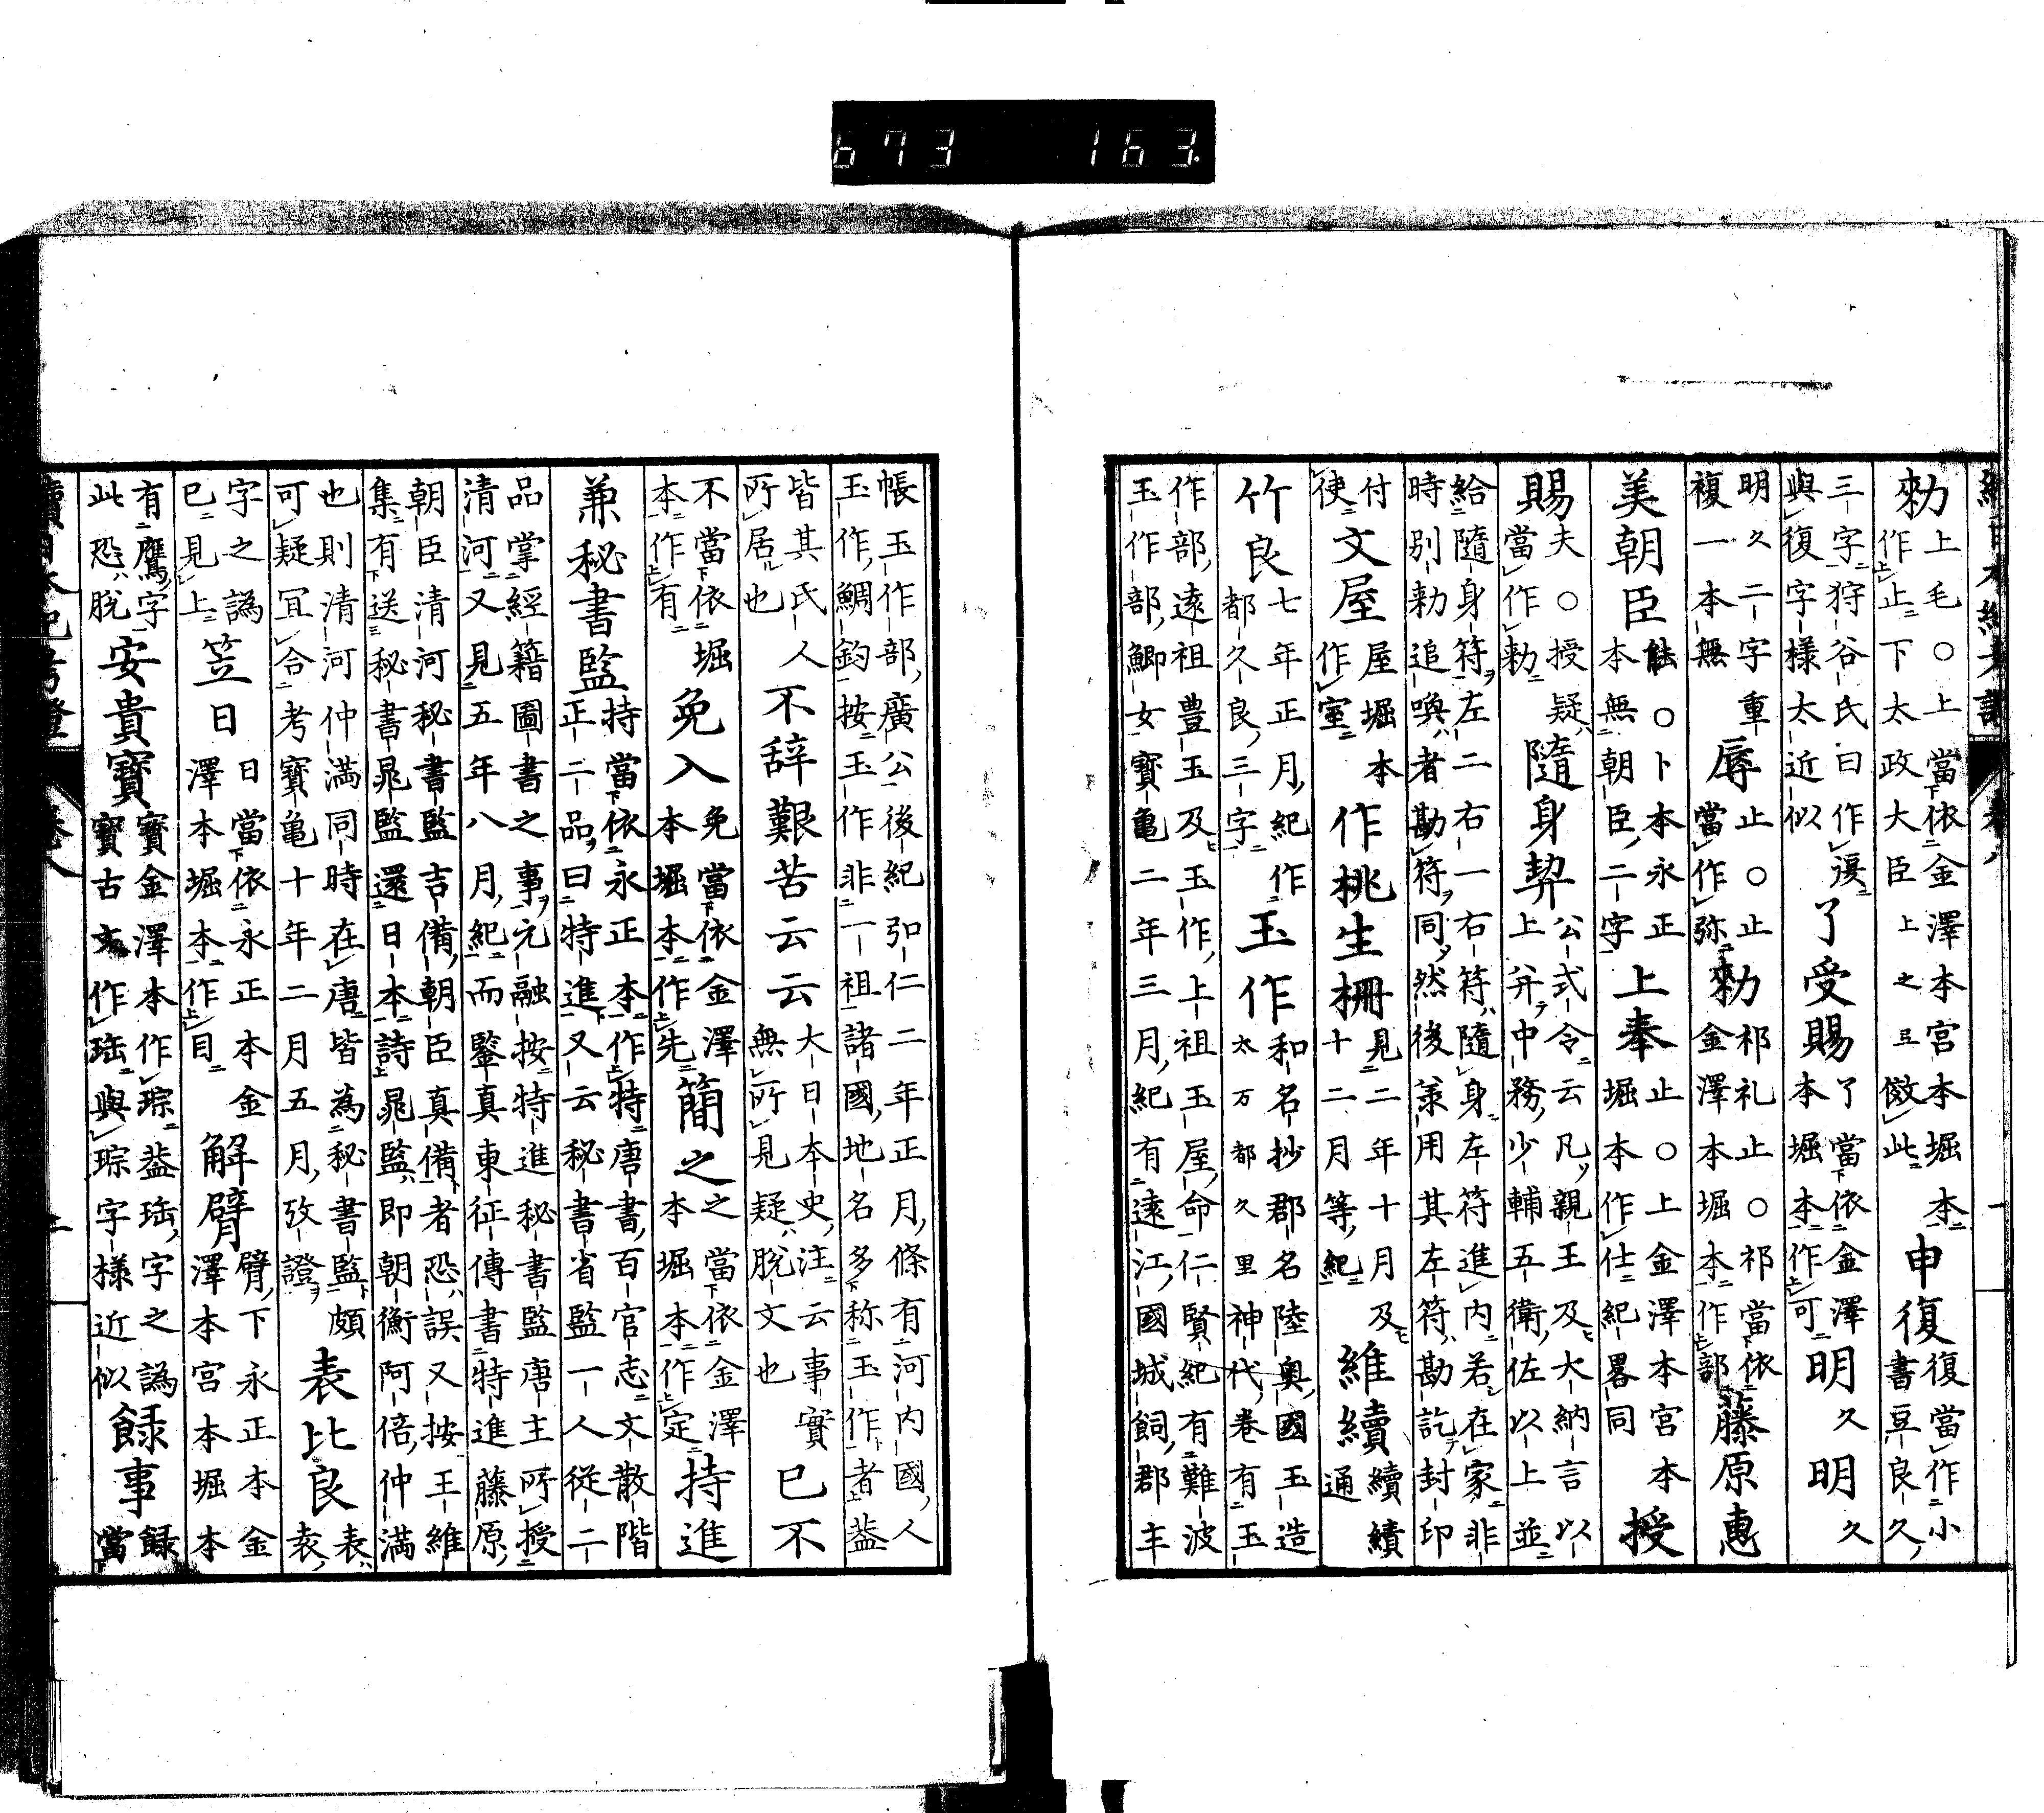 673 163
勑上毛○上當依金澤本宮本堀本作上止下太政大臣上之豆傚此申復復當作小書豆良久
三字狩谷氏曰作還與復字様太近似了受賜了當依金澤本堀本作可明久明久
明久二字重複一本無辱止○止當作弥勑祁礼止○祁當依金澤本堀本作部藤原惠
美朝臣能○卜本永正本無朝臣二字上奉止○上金澤本宮本堀本作仕紀畧同授
賜夫○授疑當作勑隨身契公式令云凡親王及大納言以上并中務少輔五衛佐以上並
給隨身符左二右一右符隨身左符進内若在家非時別勑追喚者勘符同然後兼用其左符勘訖封印
付使文屋屋堀本作室作桃生柵見二年十月及十二月等紀維續續續通
竹良七年正月紀作都久良三字玉作和名抄郡名陸奥國玉造太万都久里神代卷有玉
作部遠祖豊玉及玉作上祖玉屋命仁賢紀有難波玉作部鯽女寶亀二年三月紀有遠江國城飼郡主
帳玉作部廣公後紀弘仁二年正月條有河内國人玉作鯛釣按玉作非一祖諸國地名多称玉作者盖
皆其氏人所居也不辞艱苦云云大日本史注云事實無所見疑脱文也已不
不當依堀本作有免入免當依金澤本堀本作先簡之之當依金澤本堀本作定持進
兼秘書監持當依永正本作特唐書百官志文散階正二品曰特進又云秘書省監一人從二
品掌經籍圖書之事元融按特進秘書監唐主所授清河又見五年八月紀而鑒真東征傳書特進藤原
朝臣清河秘書監吉備朝臣真備者恐誤又按王維集有送秘書晁監還日本詩晁監即朝衡阿倍仲満
也則清河仲満同時在唐皆為秘書監頗可疑冝合考寶亀十年二月五月攷證表比良表袁
字之譌已見上笠日日當依永正本金澤本堀本作目解臂臂下永正本金澤本宮本堀本
有鷹字此恐脱安貴寶寶金澤本作琮盖珤字之譌寶古文作珤與琮字様近似録事録當